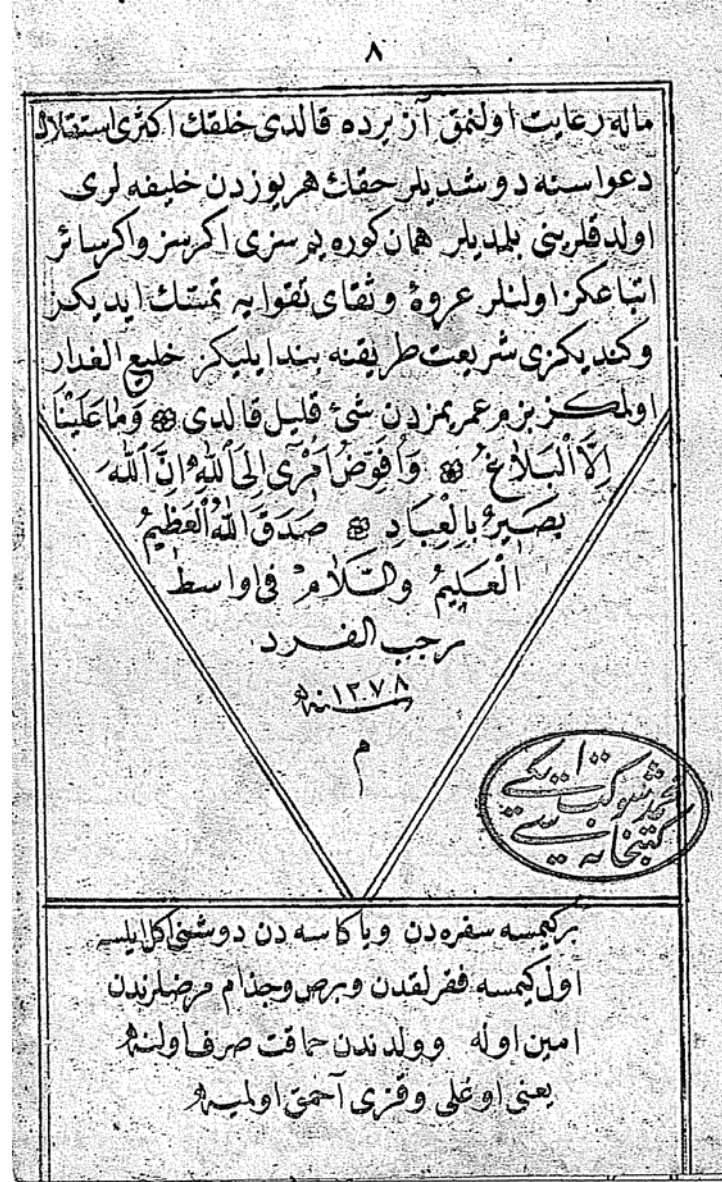 ٨
ماله رعايت اولنمق آز يرده قالدى خلقك اكثرى استقلال
دعواسنه دوشديلر حقك هر يوزدن خليفه لرى
اولدقلرينى بلمديلر همان كوره يم سزى اكر سز واكر سائر
اتباعكز اولنلر عروۀ وثقاى تقوايه تمسك ايديكز
وكنديكزى شريعت طريقنه بند ايليكز خليع العذار
اولمكز بزم عمريمزدن شئ قليل قالدى وَمَا عَلَيْنَا
اِلَّا الْبَلَاغُ وَاُفَوِّضُ اَمْرِى اِلَى اللّٰهِ اِنَّ اللّٰهَ
بَصِيرٌ بِالْعِبَادِ صَدَقَ اللّٰهُ الْعَظِيمُ
الْعَلِيمُ والسَّلَامُ فى اواسط
رجب الفرد
سنه ١٢٧٨
م
محمد شوكت
كتبخانه سى
بركيمسه سفره دن ويا كاسه دن دوشنى اكل ايلسه
اول كيمسه فقرلقدن وبرص وجذام مرضلرندن
امين اوله وولدندن حماقت صرف اولنه
يعنى اوغلى وقزى آحمق اولميه